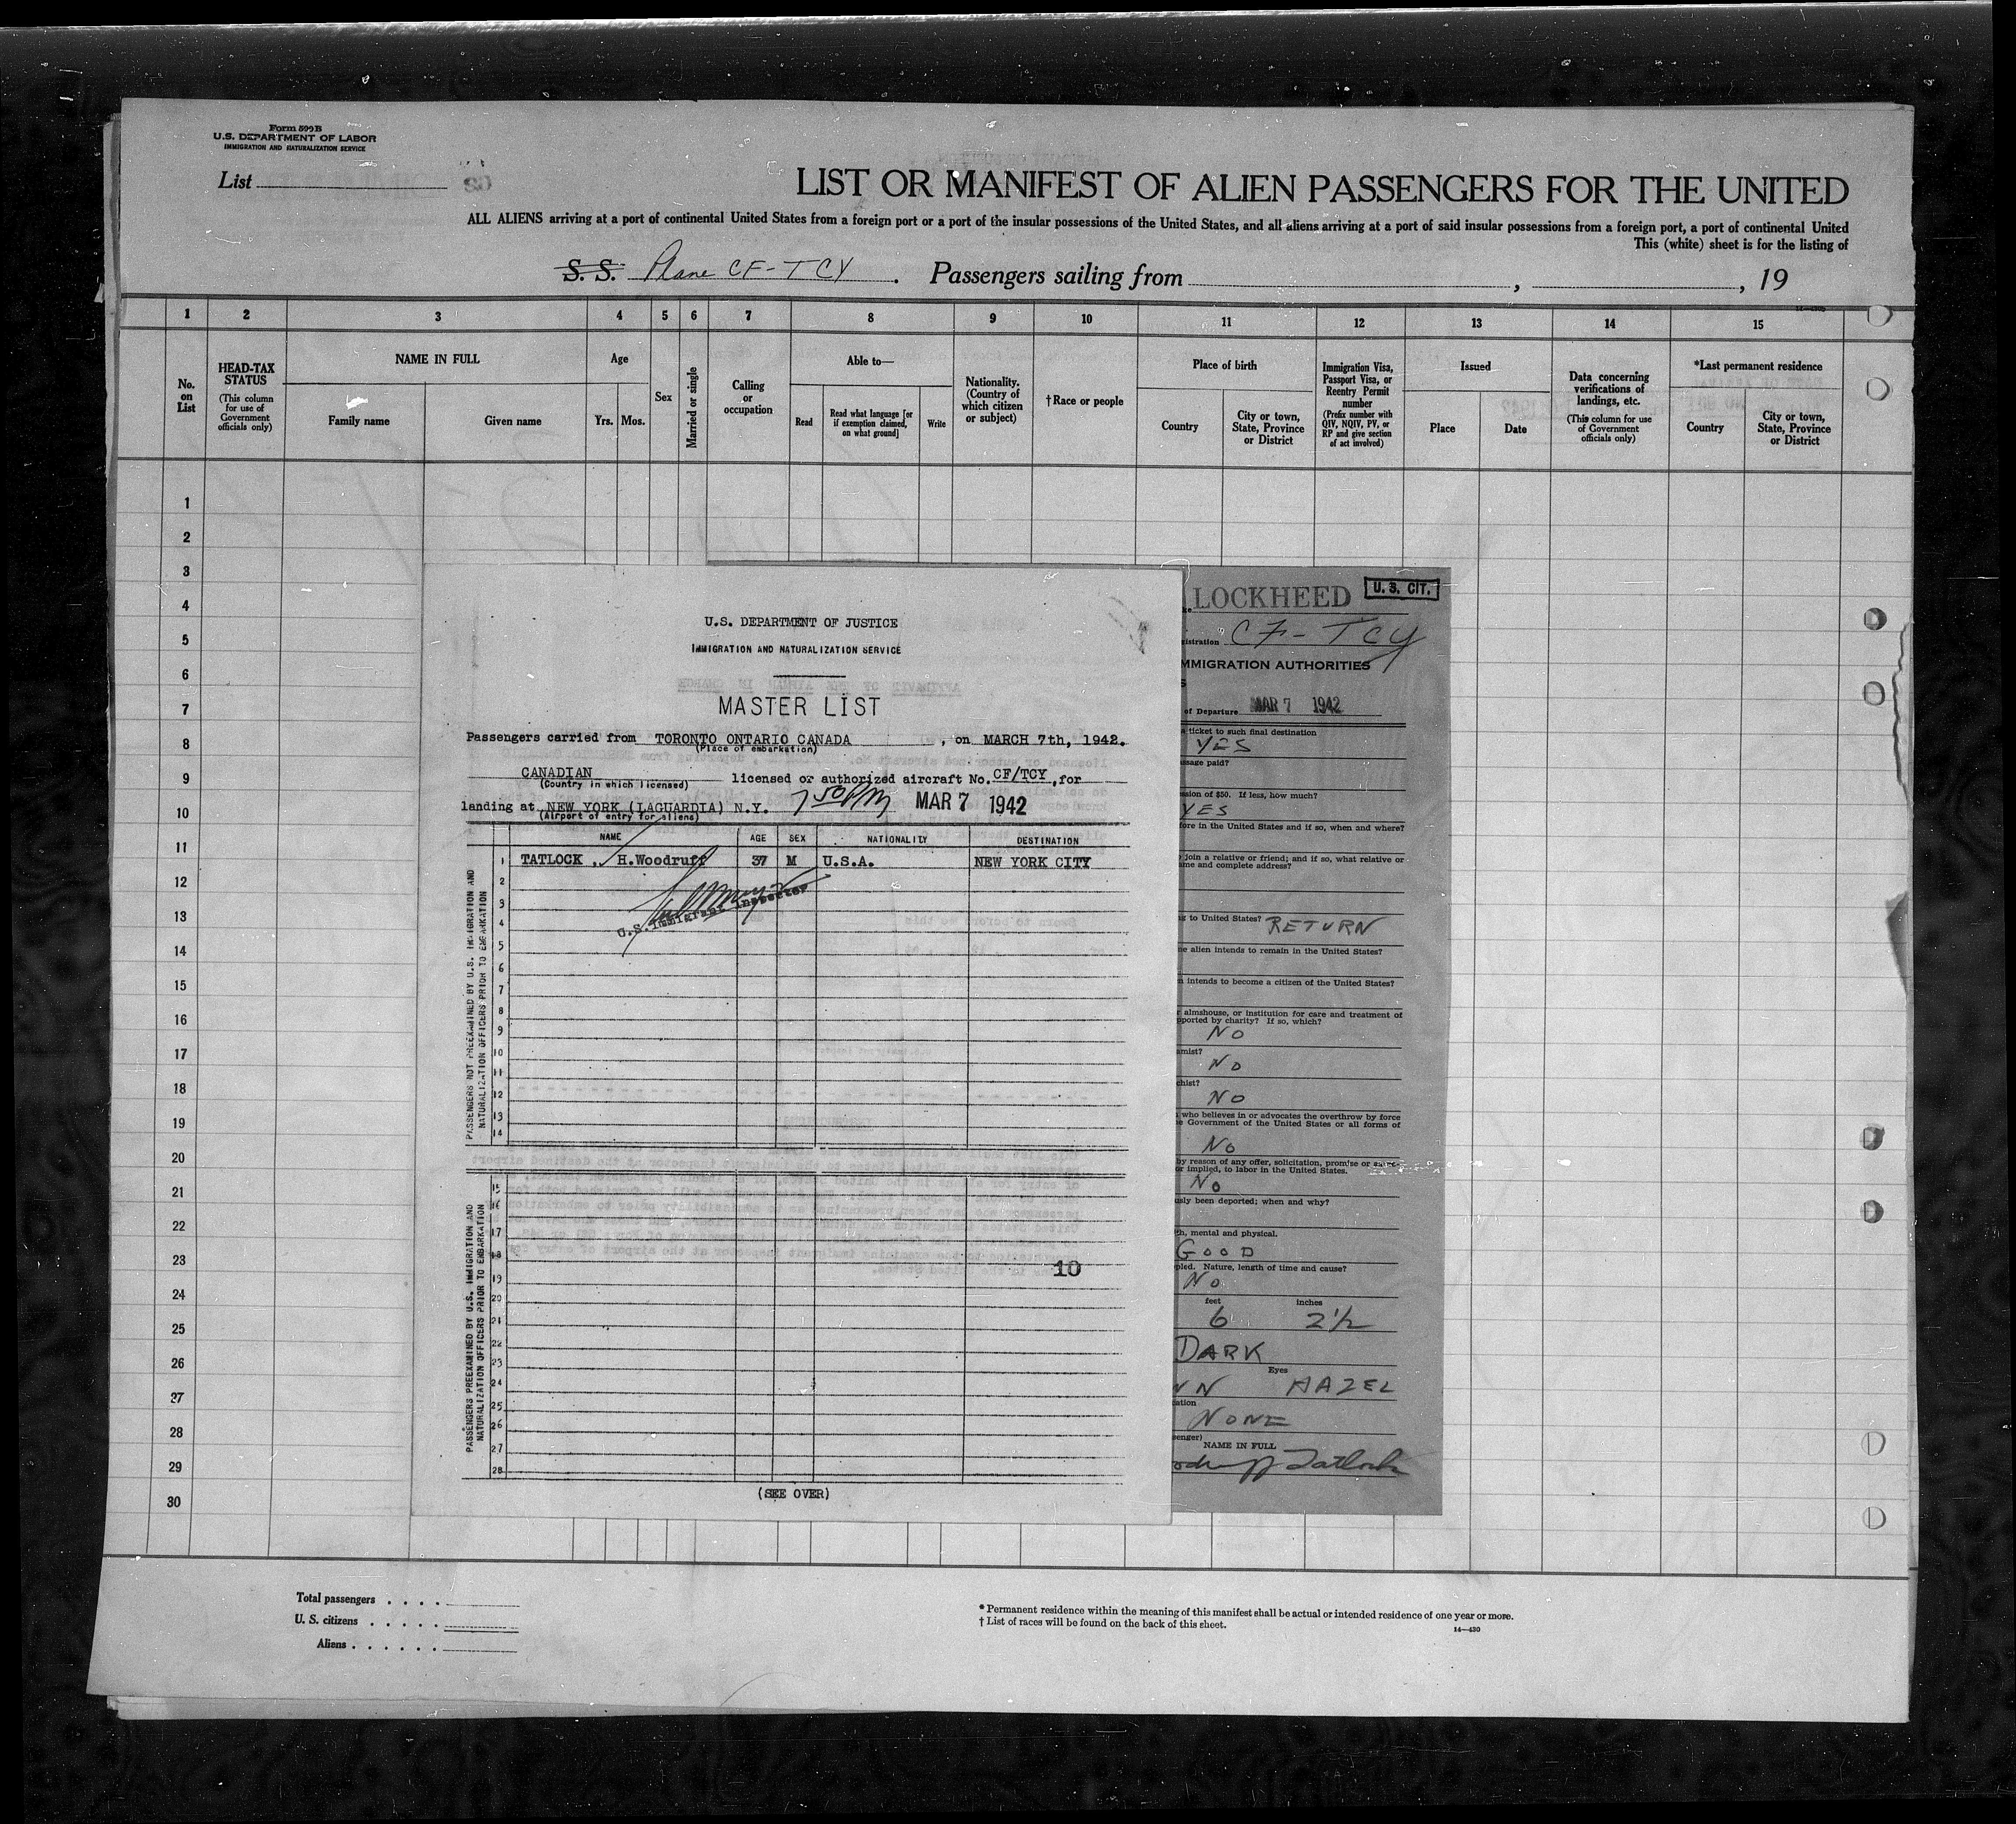 Form 599B
U.S. DEPARTMENT OF LABOR
IMMIGRATION AND NATURALIZATION SERVICE
List
LIST OR MANIFEST OF ALIEN PASSENGERS FOR THE UNITED
ALL ALIENS arriving at a port of continental United States from a foreign port or a port of the insular possessions of the United States, and all aliens arriving at a port of said insular possessions from a foreign port, a port of continental United
This (white) sheet is for the listing of
S. S. Plane CF-TCY. Passengers sailing from , , 19
1 2 3 4 5 6 7 8 9 10 11 12 13 14 15
No. on List
HEAD-TAX STATUS
(This column for use of Government officials only)
NAME IN FULL
Family name Given name
Age
Yrs. Mos.
Sex
Married or single
Calling or occupation
Able to—
Read
Read what language [or if exemption claimed, on what ground]
Write
Nationality. (Country of which citizen or subject)
†Race or people
Place of birth
Country
City or town, State, Province or District
Immigration Visa, Passport Visa, or Reentry Permit number
(Prefix number with QIV, NQIV, PV, or RP and give section of act involved)
Issued
Place Date
Data concerning verifications of landings, etc.
(This column for use of Government officials only)
*Last permanent residence
Country
City or town, State, Province or District
1
2
3
4
5
6
7
8
9
10
11
12
13
14
15
16
17
18
19
20
21
22
23
24
25
26
27
28
29
30
U.S. DEPARTMENT OF JUSTICE
IMMIGRATION AND NATURALIZATION SERVICE
MASTER LIST
Passengers carried from TORONTO ONTARIO CANADA, on MARCH 7th, 1942.
(Place of embarkation)
CANADIAN licensed or authorized aircraft No. CF/TCY, for
(Country in which licensed)
landing at NEW YORK (LAGUARDIA) N.Y. 7 50 PM MAR 7 1942
(Airport of entry for aliens)
NAME AGE SEX NATIONALITY DESTINATION
1 TATLOCK, H.Woodruff 37 M U.S.A. NEW YORK CITY
2
3
U.S. Immigrant Inspector
4
5
6
7
8
9
10
11
12
13
14
PASSENGERS NOT PREEXAMINED BY U.S. IMMIGRATION AND
NATURALIZATION OFFICERS PRIOR TO EMBARKATION
15
16
17
18
10
19
20
21
22
23
24
25
26
27
28
PASSENGERS PREEXAMINED BY U.S. IMMIGRATION AND
NATURALIZATION OFFICERS PRIOR TO EMBARKATION
(SEE OVER)
LOCKHEED U. S. CIT.
istration CF-TCY
MMIGRATION AUTHORITIES
of Departure MAR 7 1942
ticket to such final destination
YES
ssage paid?
ssion of $50. If less, how much?
YES
fore in the United States and if so, when and where?
join a relative or friend; and if so, what relative or
ame and complete address?
g to United States? RETURN
e alien intends to remain in the United States?
n intends to become a citizen of the United States?
r almshouse, or institution for care and treatment of
pported by charity? If so, which?
NO
amist?
NO
chist?
NO
who believes in or advocates the overthrow by force
e Government of the United States or all forms of
NO
by reason of any offer, solicitation, promise or
or implied, to labor in the United States.
NO
usly been deported; when and why?
th, mental and physical.
GOOD
pled. Nature, length of time and cause?
NO
feet inches
6 2½
DARK
Eyes
WN HAZEL
ation
NONE
senger)
NAME IN FULL
odruff Tatlock
Total passengers . . . .
U. S. citizens . . . . .
Aliens . . . . . .
* Permanent residence within the meaning of this manifest shall be actual or intended residence of one year or more.
† List of races will be found on the back of this sheet.
14—430